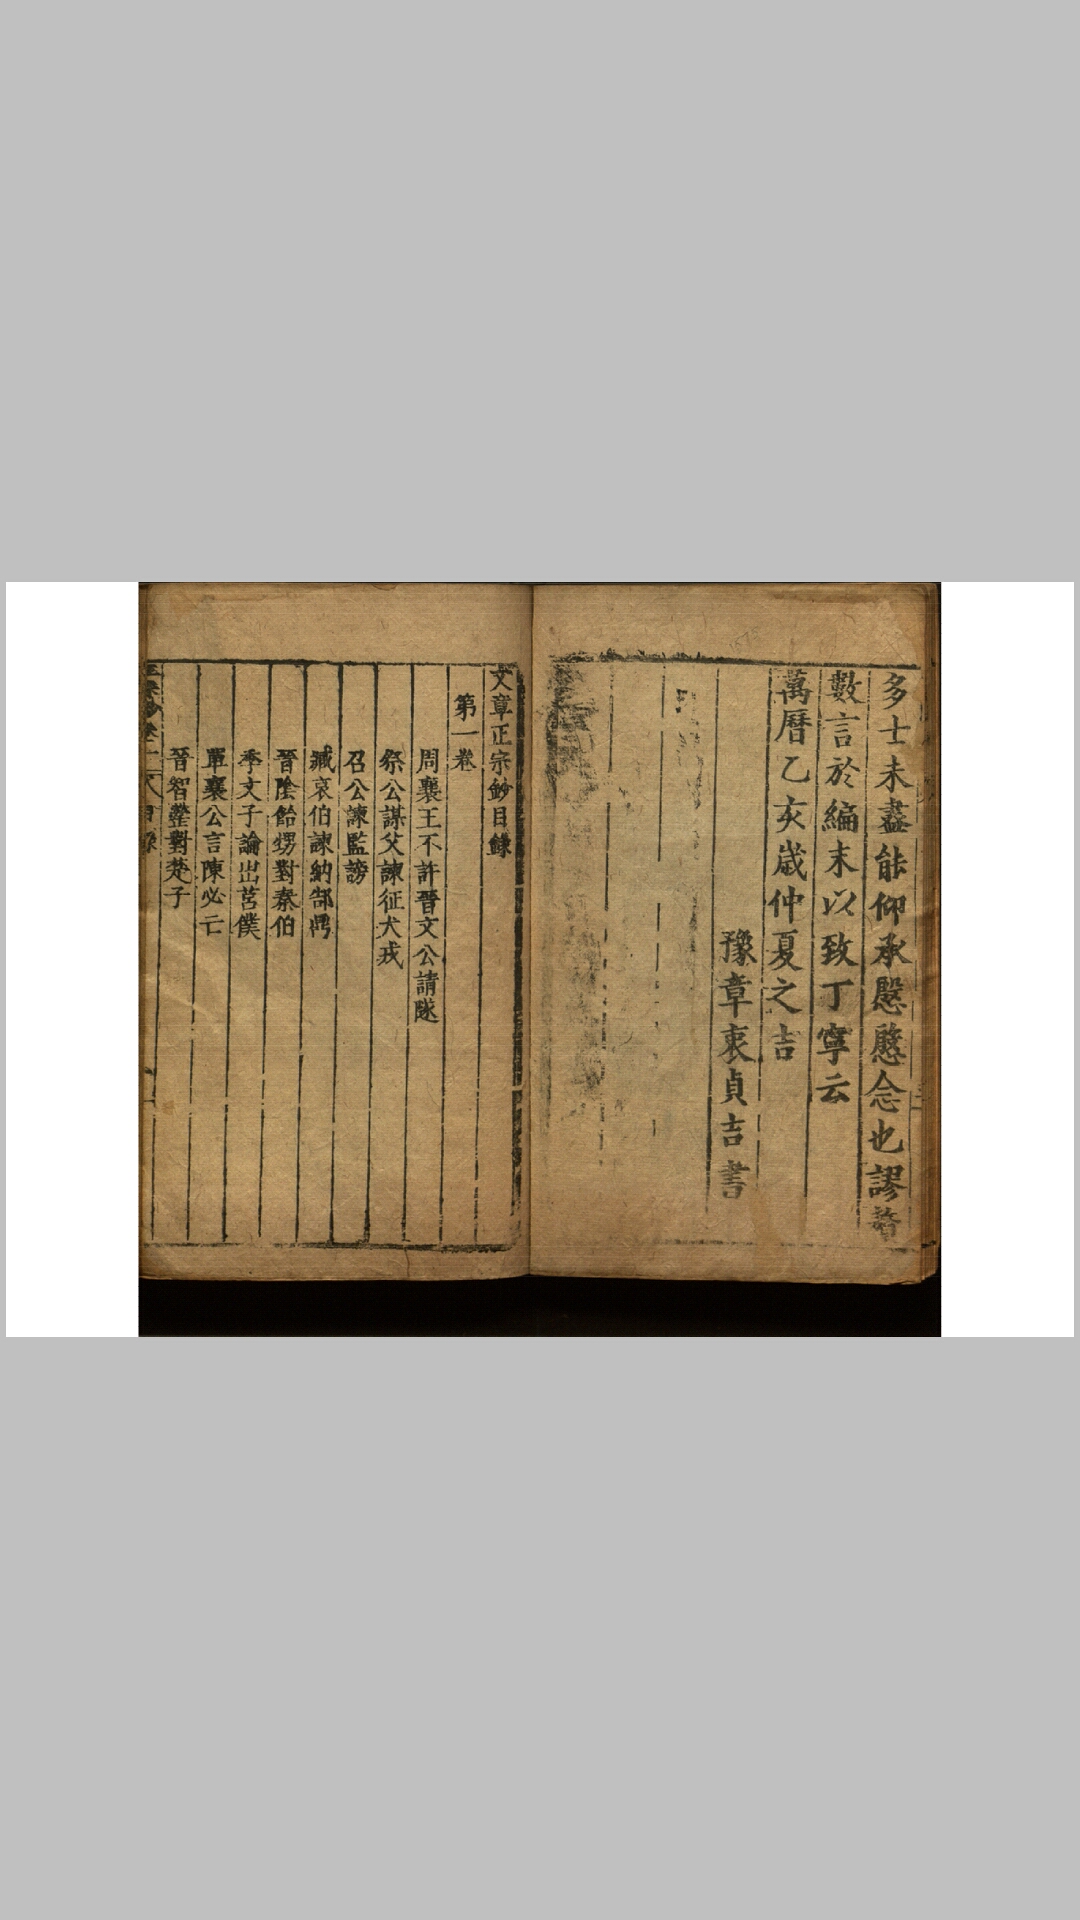 多士未盡能仰承慇慇念也謬着
數言於編末以致丁寧云
萬曆乙亥歲仲夏之吉
豫章衷貞吉書
文章正宗鈔目錄
第一卷
周襄王不許晉文公請隧
祭公謀父諫征犬戎
召公諫監謗
臧哀伯諫納郜鼎
晉陰飴甥對秦伯
季文子論出莒僕
單襄公言陳必亡
晉智罃對楚子